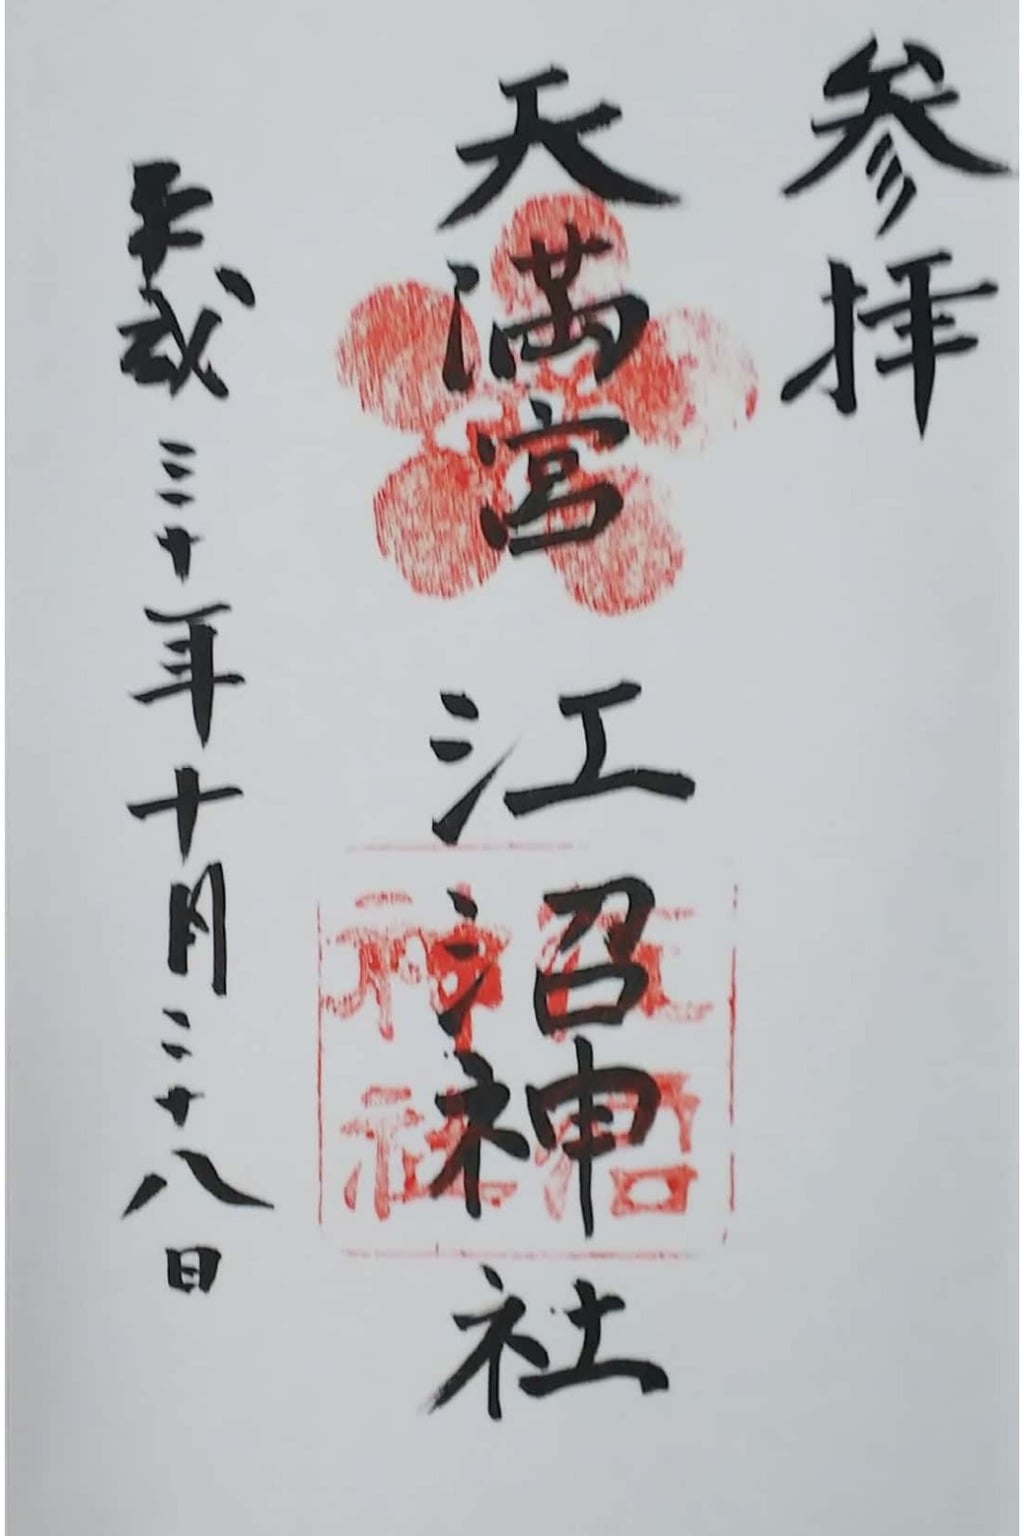 参拝
天満宮 江沼神社
江沼神社
平成三十年十月二十八日